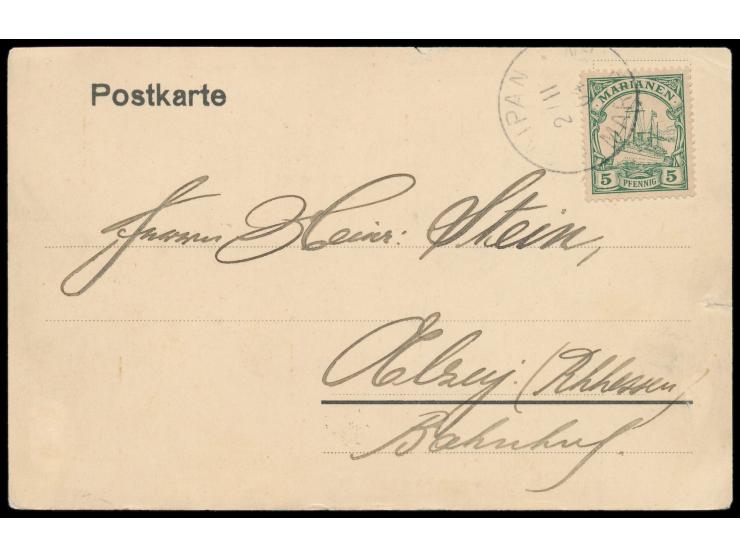 Postkarte
IPAN
2/11
MAR
MARIANEN
5 PFENNIG 5
Herrn Heinr: Stein,
Alzey: (Rhhessen)
Bahnhof.